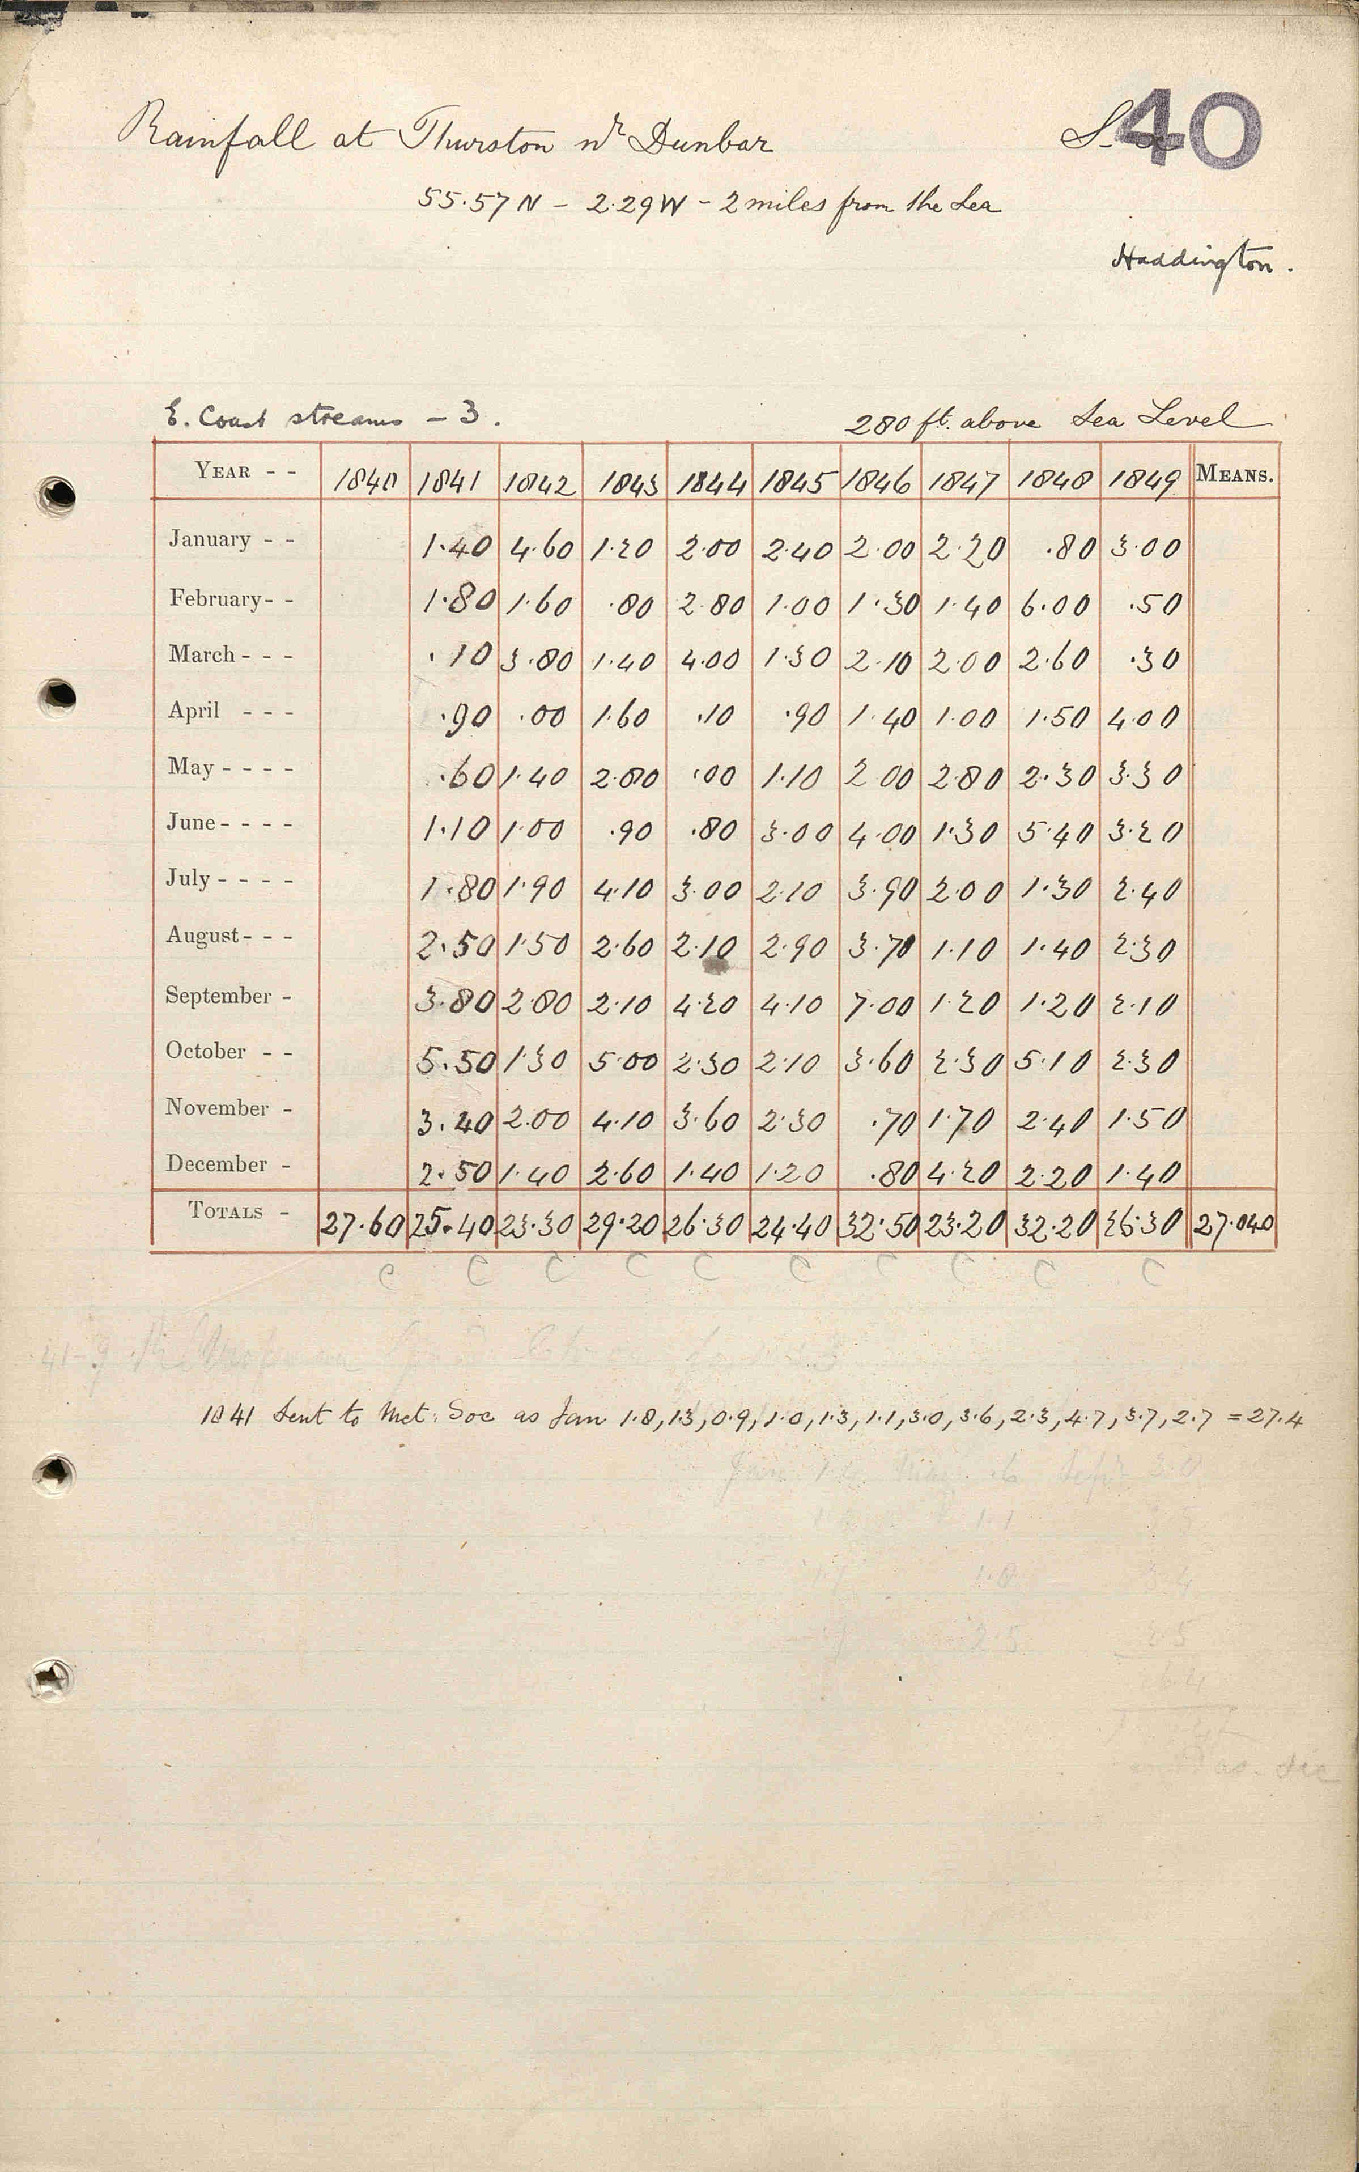 Rainfall at Thurston nr Dunbar
40
55.57 N - 2.29 W - 2 miles from the Sea
Haddington.
E. Coast streams - 3.
280 ft. above Sea Level
YEAR - - 1840 1841 1842 1843 1844 1845 1846 1847 1848 1849 MEANS.
January - - 1.40 4.60 1.20 2.00 2.40 2.00 2.20 .80 3.00
February - - 1.80 1.60 .80 2.80 1.00 1.30 1.40 6.00 .50
March - - - .10 3.80 1.40 4.00 1.30 2.10 2.00 2.60 .30
April - - - .90 .00 1.60 .10 .90 1.40 1.00 1.50 4.00
May - - - - .60 1.40 2.80 .00 1.10 2.00 2.80 2.30 3.30
June - - - - 1.10 1.00 .90 .80 3.00 4.00 1.30 5.40 3.20
July - - - - 1.80 1.90 4.10 3.00 2.10 3.90 2.00 1.30 2.40
August - - - 2.50 1.50 2.60 2.10 2.90 3.70 1.10 1.40 2.30
September - 3.80 2.80 2.10 4.20 4.10 7.00 1.20 1.20 2.10
October - - 5.50 1.30 5.00 2.30 2.10 3.60 2.30 5.10 2.30
November - 3.40 2.00 4.10 3.60 2.30 .70 1.70 2.40 1.50
December - 2.50 1.40 2.60 1.40 1.20 .80 4.20 2.20 1.40
TOTALS - 27.60 25.40 23.30 29.20 26.30 24.40 32.50 23.20 32.20 26.30 27.040
c c c c c c c c c c
1841 Sent to Met. Soc as Jan 1.8, 1.3, 0.9, 1.0, 1.3, 1.1, 3.0, 3.6, 2.3, 4.7, 3.7, 2.7 = 27.4